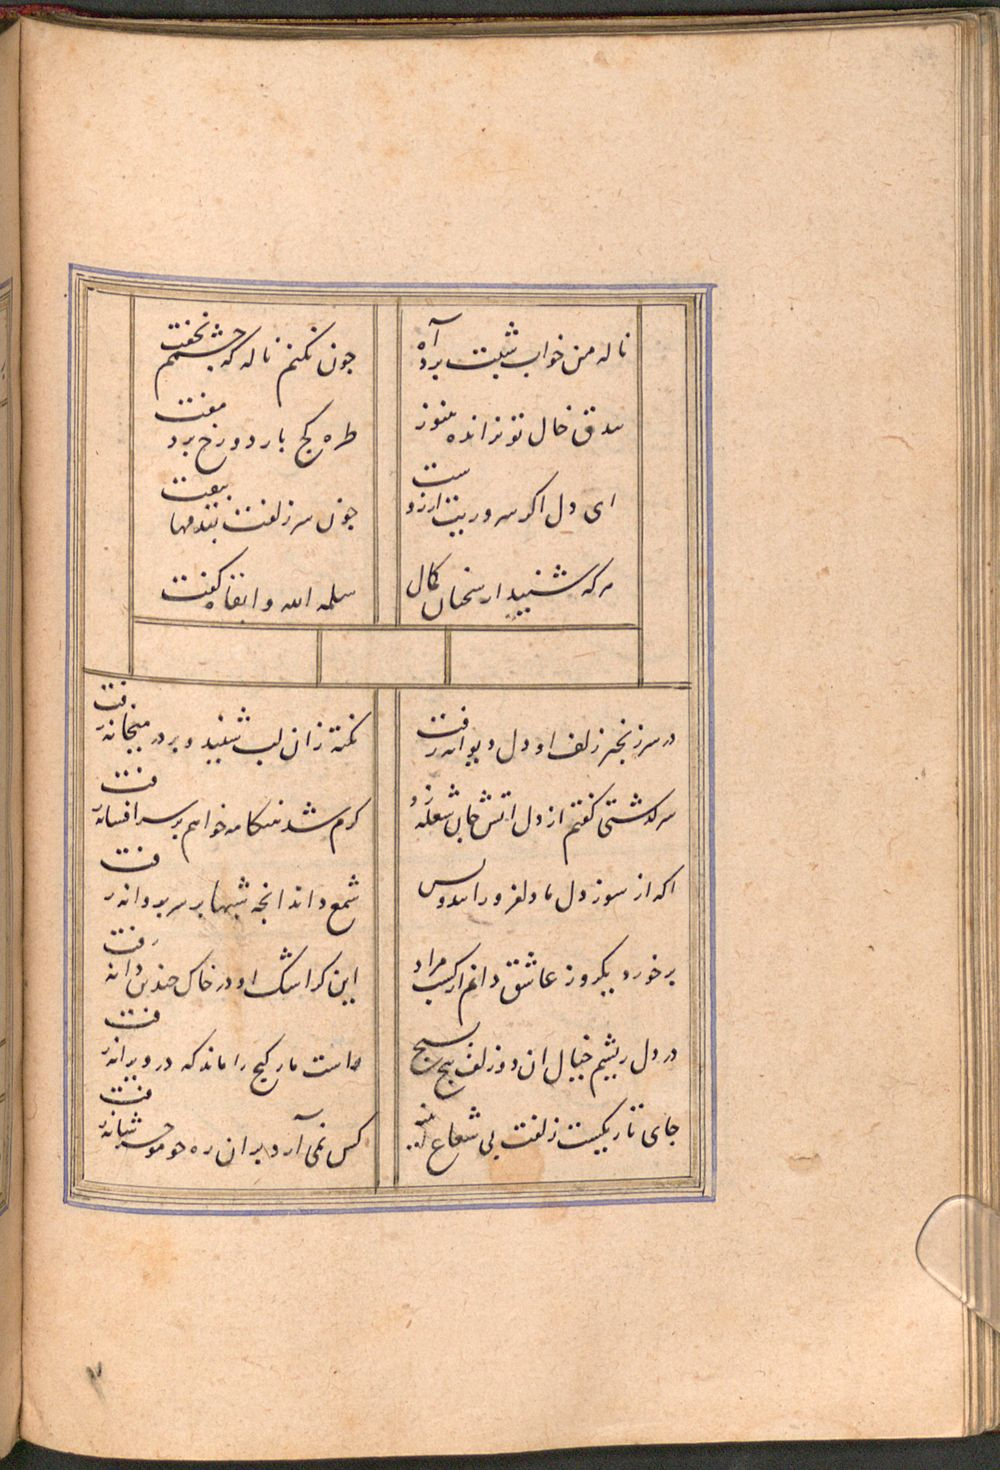 ناله من خواب شبت برد آه
چون نکنم ناله که چشمم نخفت
بیدق خال تو نرانده هنوز
طره کج بازد و رخ برد مفت
ای دل اگر سروریت آرزوست
چون سر زلفت بیفت
هر که شنید از سخنان کمال
سلمه الله و ابقاه گفت
در سر زنجیر زلف او دل دیوانه رفت
نکته زان لب شنید و بر در میخانه رفت
سرگذشتی گفتم از دل آتش جان شعله زد
گرم شد هنگامه خواهم بر سر افسانه رفت
آنکه از سوز دل ما دلفروز دوش
شمع داند آنچه شبها بر سر پروانه رفت
برخورد یکروز عاشق دانم از کشت مراد
این کز اشک او در خاک چندین دانه رفت
در دل ریشم خیال آن دو زلف پیچ پیچ
راست مار گنج را ماند که در ویرانه رفت
جای تاریکیست زلفت بی شعاع
کس نمی آرد بر آن ره مو چو شانه رفت